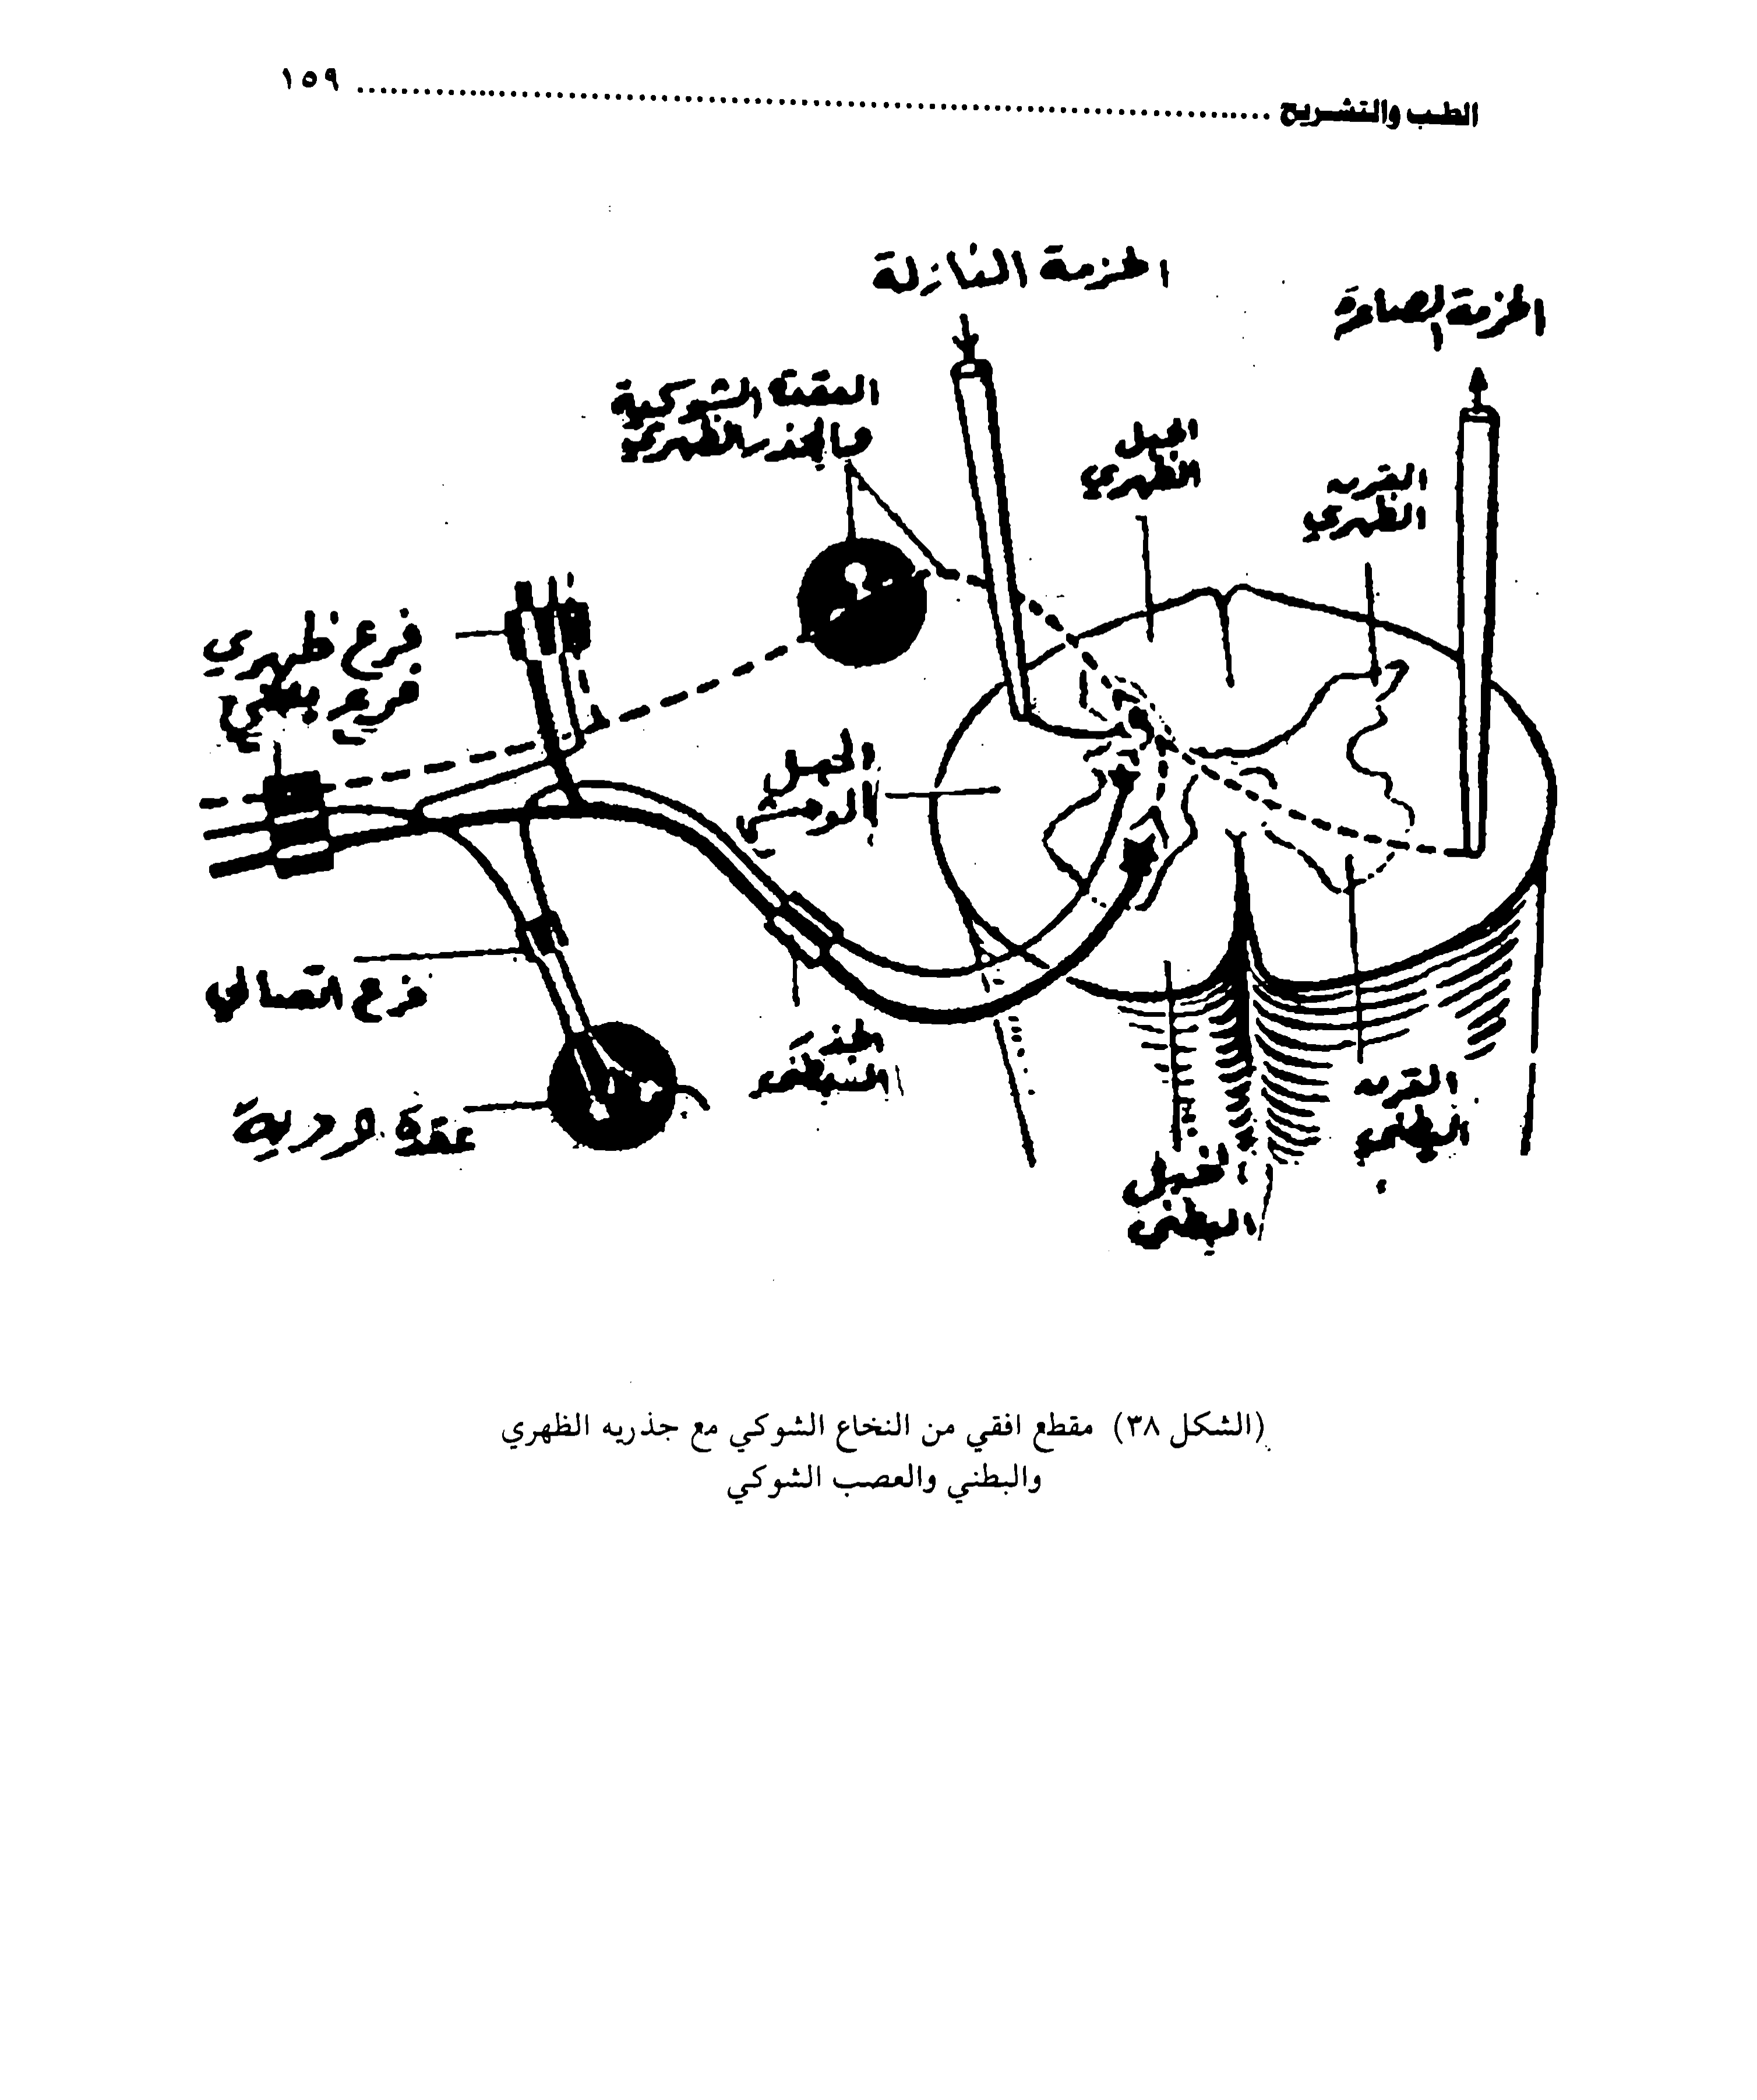 الطب والتشريح ........................................ ١٥٩
الحزمة النازلة
الحزمة الصاعدة
العقدة الشوكية
والجذر الظهري
الحبل
الظهري
القرن
الظهري
فرع ظهري
فرع بطني
الحبل
الوحشي
فرع اتصالي
الجذر
البطني
القرن
البطني
عقدة ودية
الحبل
البطني
(الشكل ٣٨) مقطع افقي من النخاع الشوكي مع جذريه الظهري
والبطني والعصب الشوكي